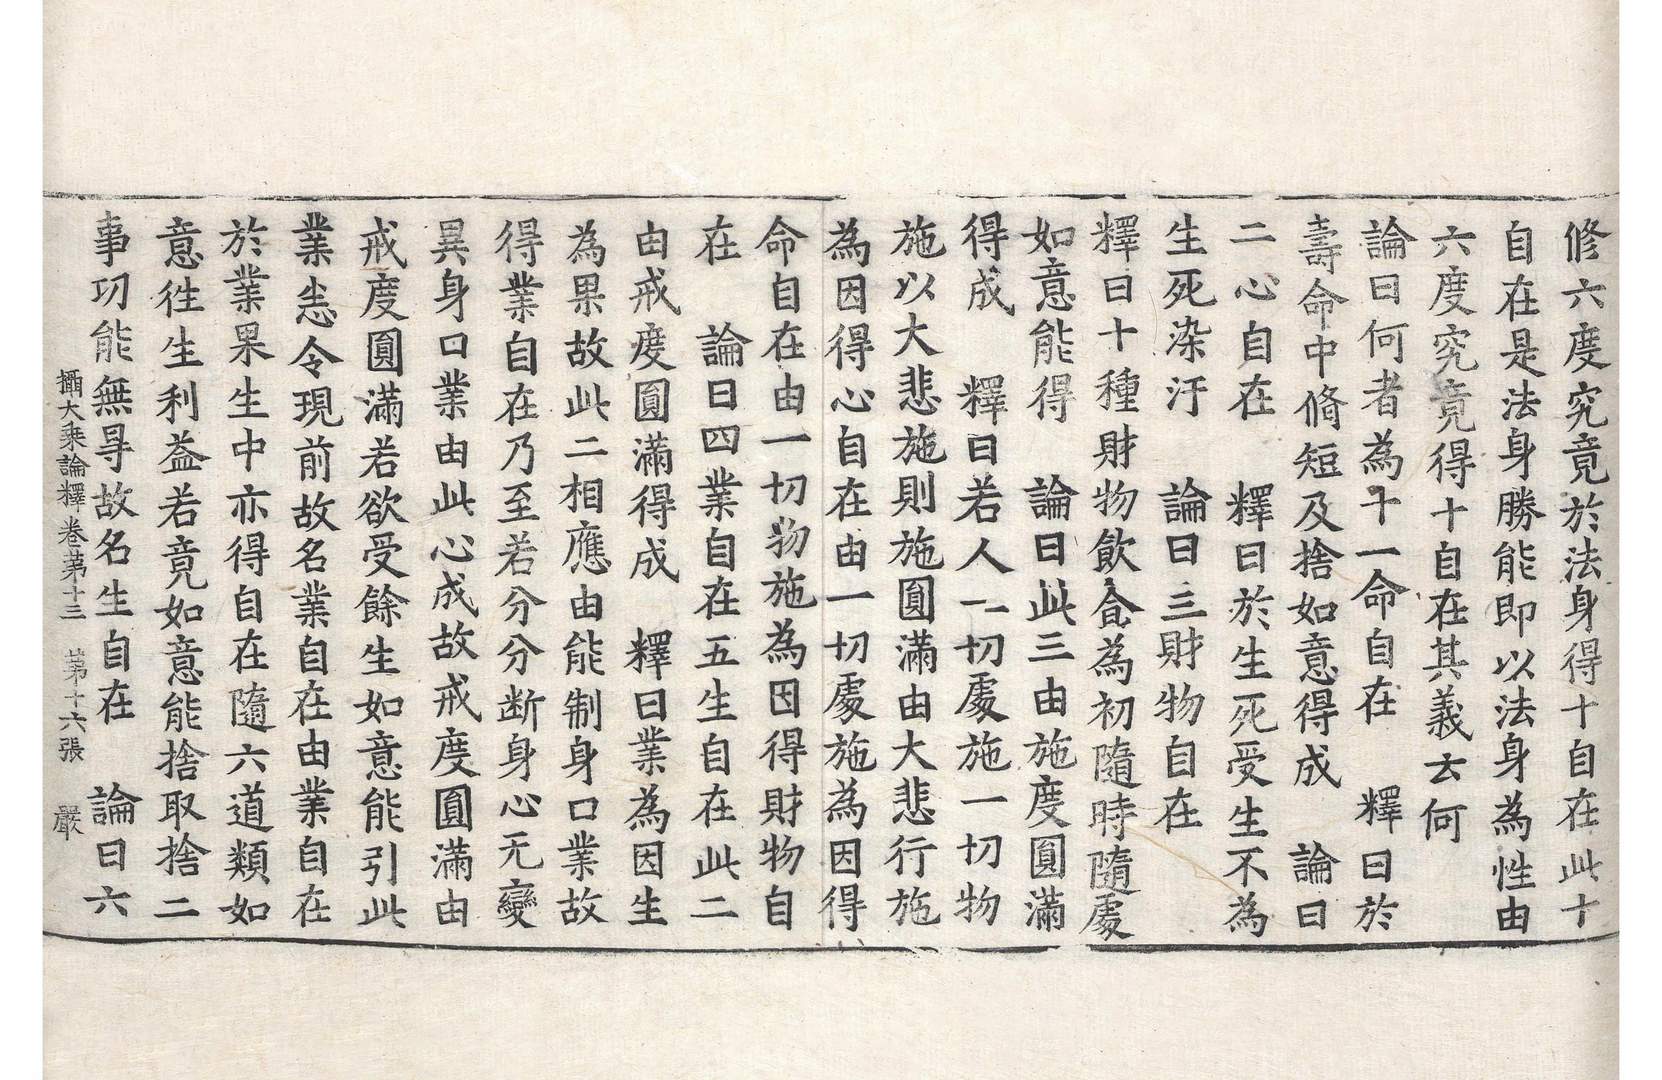 修六度究竟於法身得十自在此十
自在是法身勝能即以法身為性由
六度究竟得十自在其義云何
論曰何者為十一命自在　釋曰於
壽命中脩短及捨如意得成　論曰
二心自在　釋曰於生死受生不為
生死染汙　論曰三財物自在
釋曰十種財物飲食為初隨時隨處
如意能得　論曰此三由施度圓滿
得成　釋曰若人一切處施一切物
施以大悲施則施圓滿由大悲行施
為因得心自在由一切處施為因得
命自在由一切物施為因得財物自
在　論曰四業自在五生自在此二
由戒度圓滿得成　釋曰業為因生
為果故此二相應由能制身口業故
得業自在乃至若分分断身心无變
異身口業由此心成故戒度圓滿由
戒度圓滿若欲受餘生如意能引此
業恙令現前故名業自在由業自在
於業果生中亦得自在隨六道類如
意徃生利益若竟如意能捨取捨二
事功能無㝵故名生自在　論曰六
攝大乘論釋卷苐十三　苐十六張　嚴